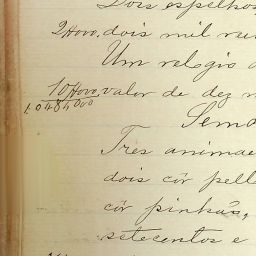 Dois espelhos
2$000, dois mil rei
Um relogio
10$000, valor de dez m
1.084$000
Sem
Tres animae
dois côr pell
côr pinhão,
setecentos e